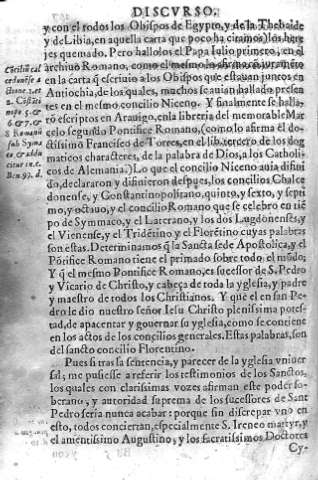 DISCVRSO.
y con el todos los Obispos de Egypto, y de la Thebaide
y de Libia, en aquella carta que poco ha citamos, los here
jes quemado. Pero hallolos el Papa Iulio primero, en el
archiuo Romano, como el mesmo lo afirma
en la carta q̃ escriuio a los Obispos que estauan juntos en
Antiochia, de los quales, muchos se auian hallado presen
tes en el mesmo concilio Niceno. Y finalmente se halla-
rõ escriptos en Arauigo, en la libreria del memorable Mar
celo segundo Pontifice Romano, (como lo afirma el do-
ctissimo Francisco de Torres, en el libro tercero de los dog
maticos characteres, de la palabra de Dios, a los Catholi-
cos de Alemania.) Lo que el concilio Niceno auia difini
do, declararon y difinieron despues, los concilios Chalce
donense, y Constantinopolitano, quinto, y sexto, y septi
mo, y octauo, y el concilio Romano que se celebro en tiẽ
po de Symmaco, y el Laterano, y los dos Lugdonenses, y
el Vienense, y el Tridẽtino y el Florẽtino cuyas palabras
son estas. Determinamos q̃ la Sancta sede Apostolica, y el
Põtifice Romano tiene el primado sobre todo el mũdo;
Y q̃ el mesmo Pontifice Romano, es sucessor de S. Pedro
y Vicario de Christo, y cabeça de toda la yglesia, y padre
y maestro de todos los Christianos. Y que el en san Pe-
dro le dio nuestro señor Iesu Christo plenissima potes-
tad, de apacentar y gouernar su yglesia, como se contiene
en los actos de los concilios generales. Estas palabras, son
del sancto concilio Florentino.
Pues si tras la sentencia, y parecer de la yglesia vniuer
sal; me pusiesse a referir los testimonios de los Sanctos,
los quales con clarissimas vozes afirman este poder so-
berano, y autoridad suprema de los sucessores de Sant
Pedro seria nunca acabar: porque sin discrepar vno en
esto, todos conciertan, especialmente S. Ireneo martyr, y
el amentissimo Augustino, y los sacratissimos Doctores
Cy-